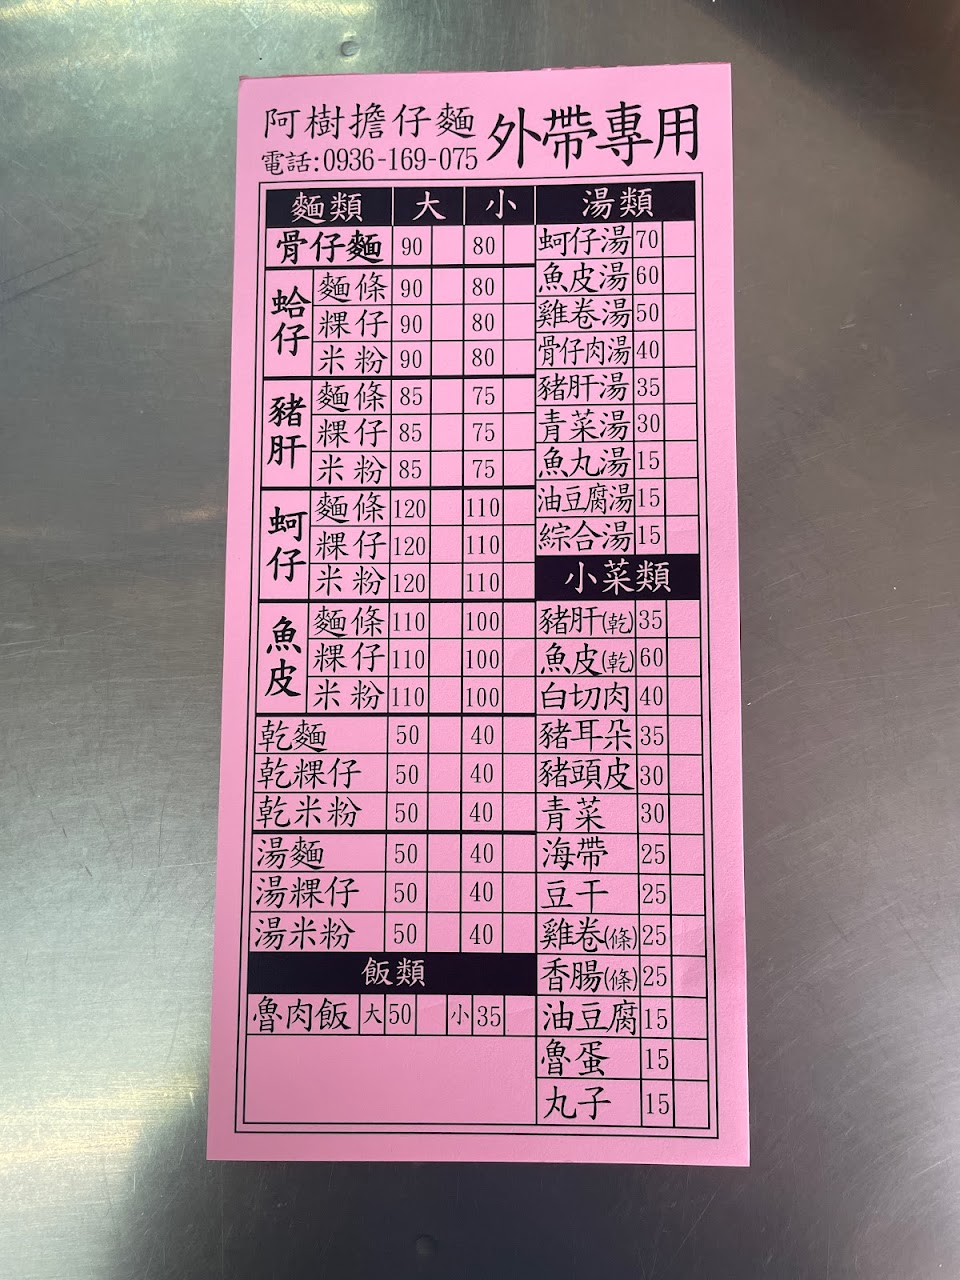 阿樹擔仔麵
電話:0936-169-075
外帶專用
麵類 大 小
骨仔麵 90 80
蛤仔
麵條 90 80
粿仔 90 80
米粉 90 80
豬肝
麵條 85 75
粿仔 85 75
米粉 85 75
蚵仔
麵條 120 110
粿仔 120 110
米粉 120 110
魚皮
麵條 110 100
粿仔 110 100
米粉 110 100
乾麵 50 40
乾粿仔 50 40
乾米粉 50 40
湯麵 50 40
湯粿仔 50 40
湯米粉 50 40
飯類
魯肉飯 大 50 小 35
湯類
蚵仔湯 70
魚皮湯 60
雞卷湯 50
骨仔肉湯 40
豬肝湯 35
青菜湯 30
魚丸湯 15
油豆腐湯 15
綜合湯 15
小菜類
豬肝(乾) 35
魚皮(乾) 60
白切肉 40
豬耳朵 35
豬頭皮 30
青菜 30
海帶 25
豆干 25
雞卷(條) 25
香腸(條) 25
油豆腐 15
魯蛋 15
丸子 15